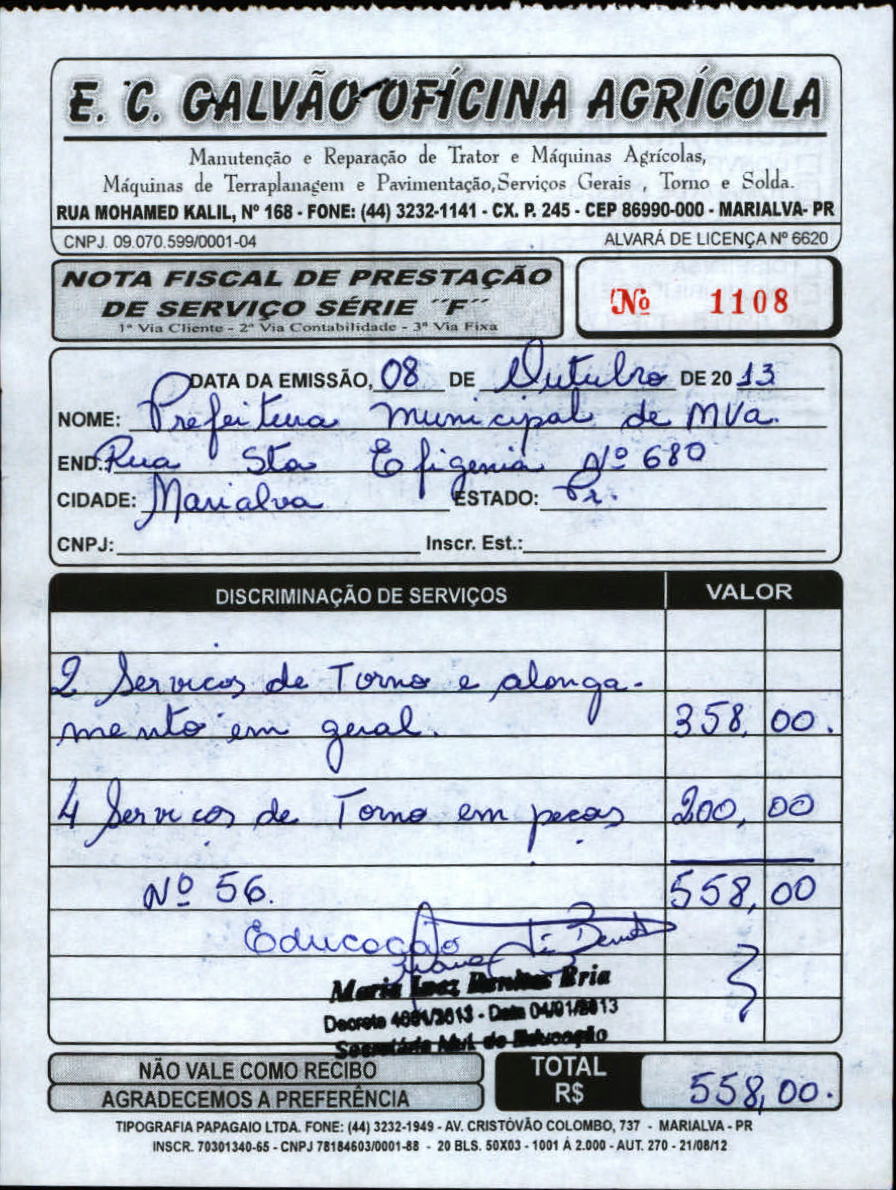 E. C. GALVÃO OFÍCINA AGRÍCOLA
Manutenção e Reparação de Trator e Máquinas Agrícolas,
Máquinas de Terraplanagem e Pavimentação, Serviços Gerais , Torno e Solda.
RUA MOHAMED KALIL, Nº 168 - FONE: (44) 3232-1141 - CX. P. 245 - CEP 86990-000 - MARIALVA- PR
CNPJ. 09.070.599/0001-04 ALVARÁ DE LICENÇA Nº 6620
NOTA FISCAL DE PRESTAÇÃO
DE SERVIÇO SÉRIE "F"
1ª Via Cliente - 2ª Via Contabilidade - 3ª Via Fixa
Nº 1108
DATA DA EMISSÃO, 08 DE Outubro DE 20 13
NOME: Prefeitura municipal de MVa.
END.: Rua Sta Efigenia Nº 680
CIDADE: Marialva ESTADO: Pr.
CNPJ: Inscr. Est.:
DISCRIMINAÇÃO DE SERVIÇOS VALOR
2 Servicos de Torno e alonga-
mento em geral. 358,00.
4 Servicos de Torno em pecas 200,00
Nº 56. 558,00
Educacão
Maria Inez Benites Bria
Decreto 4081/2013 - Data 04/01/2013
Secretária Mul. de Educação
NÃO VALE COMO RECIBO
AGRADECEMOS A PREFERÊNCIA
TOTAL
R$ 558,00.
TIPOGRAFIA PAPAGAIO LTDA. FONE: (44) 3232-1949 - AV. CRISTÓVÃO COLOMBO, 737 - MARIALVA - PR
INSCR. 70301340-65 - CNPJ 78184603/0001-88 - 20 BLS. 50X03 - 1001 Á 2.000 - AUT. 270 - 21/08/12